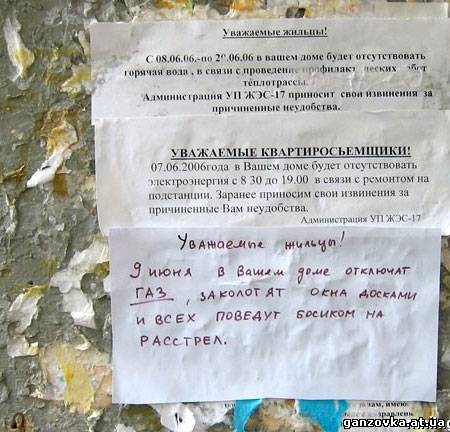 Уважаемые жильцы!
С 08.06.06.-по 2 .06.06 в вашем доме будет отсутствовать
горячая вода , в связи с проведение профилакт ческих або
теплотрассы.
Администрация УП ЖЭС-17 приносит свои извинения за
причиненные неудобства.
УВАЖАЕМЫЕ КВАРТИРОСЬЕМЩИКИ!
07.06.2006года в Вашем доме будет отсутствовать
электроэнергия с 8 30 до 19.00 в связи с ремонтом на
подстанции. Заранее приносим свои извинения за
причиненные Вам неудобства.
Администрация УП ЖЭС-17
Уважаемые жильцы!
9 июня в Вашем доме отключат
ГАЗ, заколотят окна досками
и всех поведут босиком на
расстрел.
ganzovka.at.ua